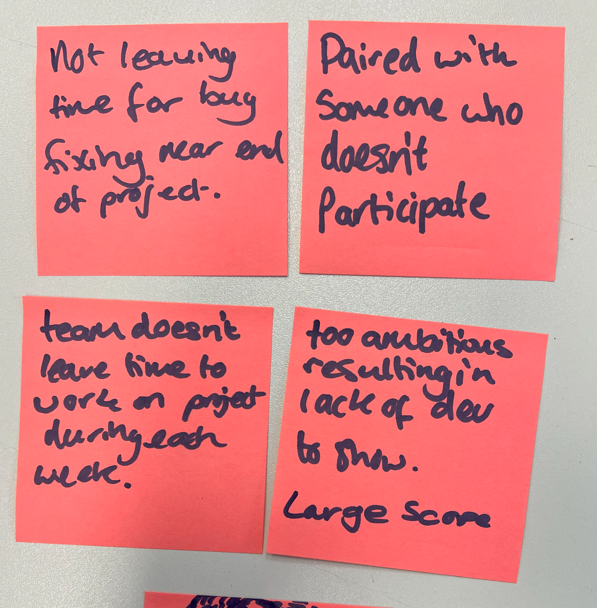 Not leaving
time for bug
fixing near end
of project.
Paired with
Someone who
doesn't
Participate
team doesn't
leave time to
work on project
during each
week.
too ambitious
resulting in
lack of dev
to show.
Large Scope